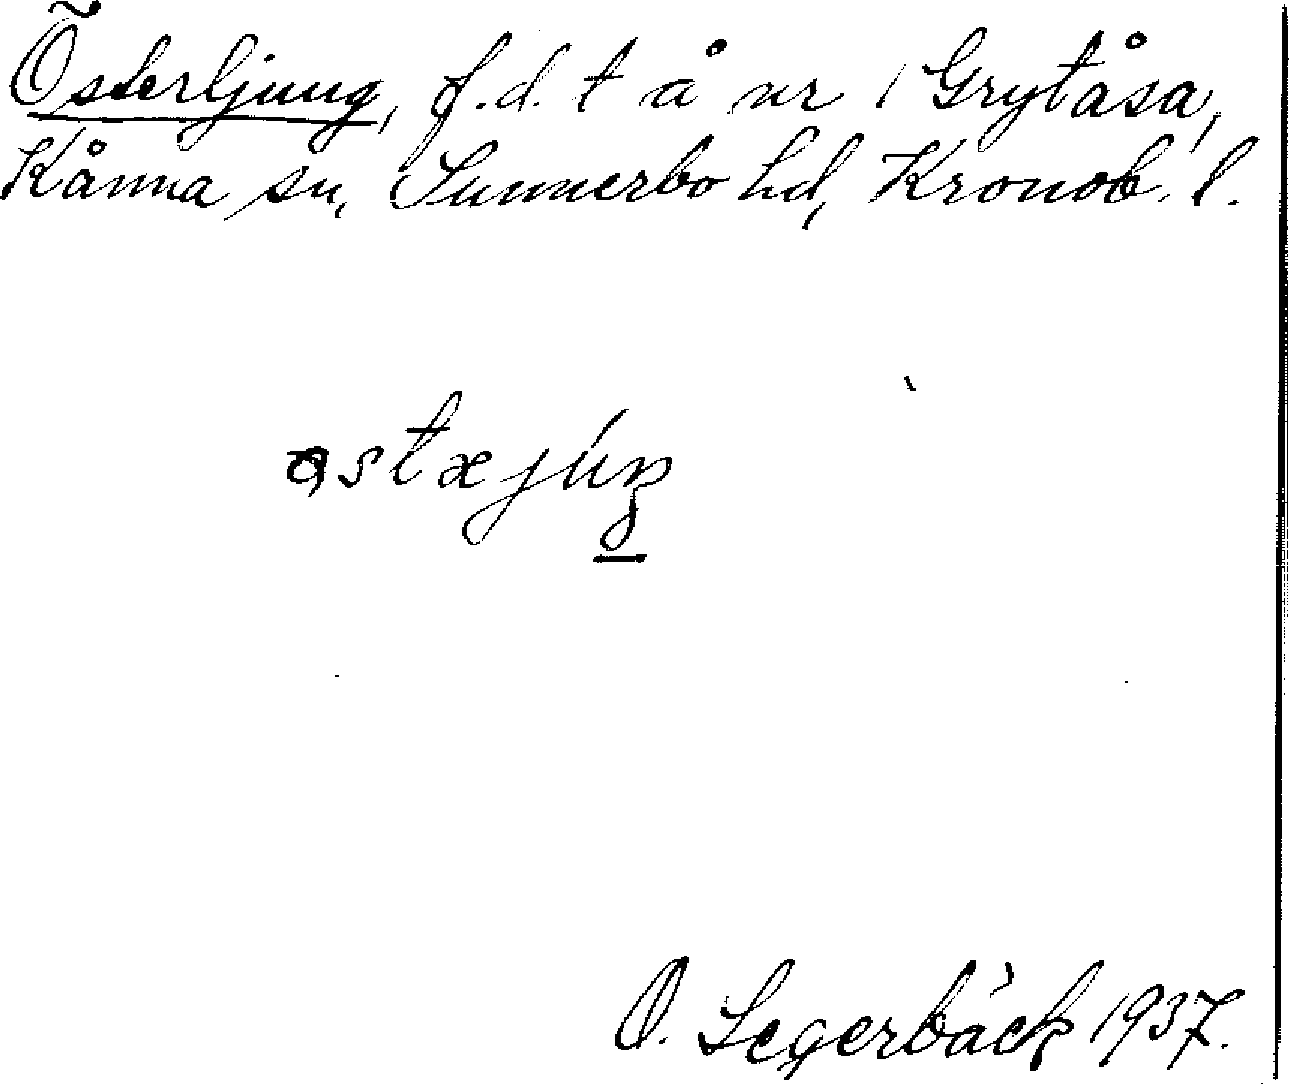 Österljung, f.d. t å nr 1 Grytåsa,
Kånna sn, Sunnerbo hd, Kronob. l.
O. Segerbäck 1937.